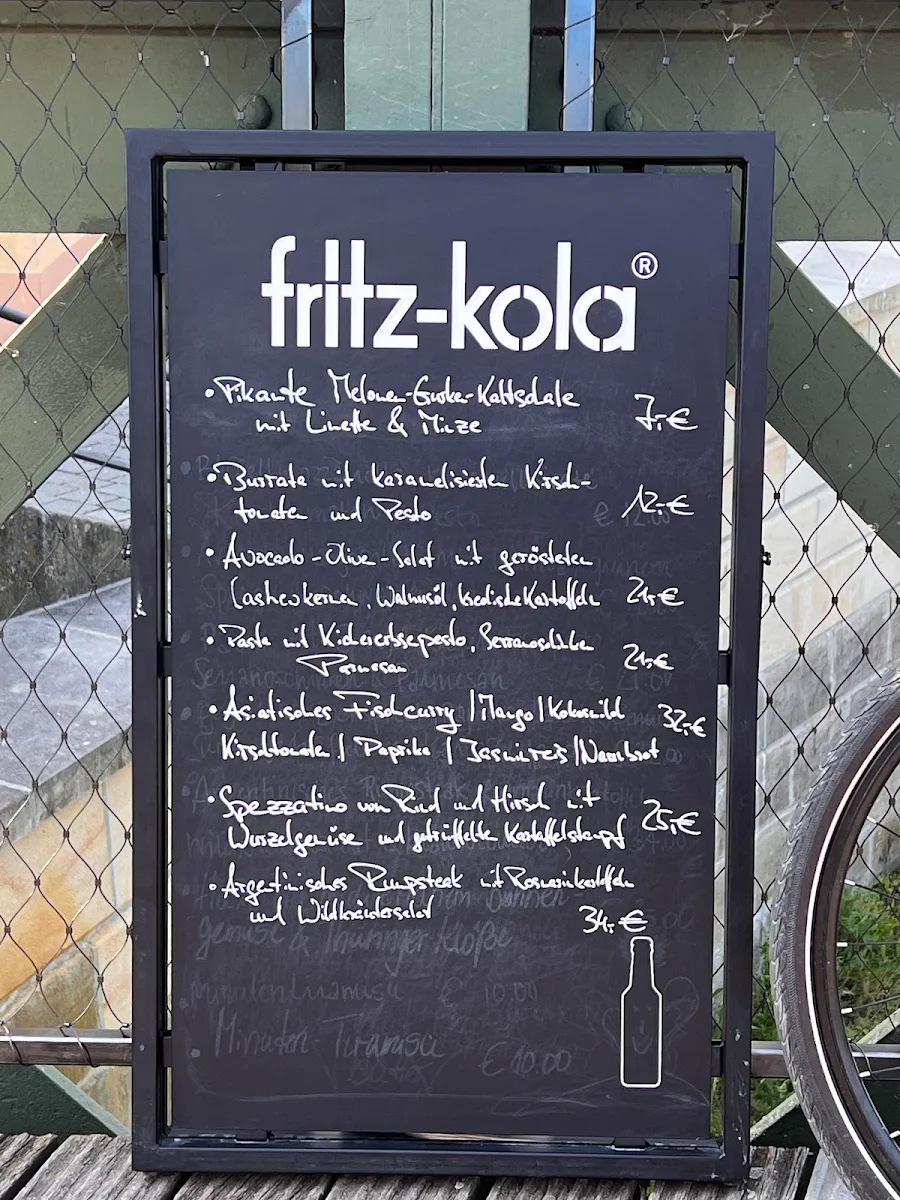 fritz-kola®
• Pikante Melonen-Gurken-Kaltschale
mit Limette & Minze 7,-€
• Burrata mit karamelisierten Kirsch-
tomaten und Pesto 12,-€
• Avocado-Olive-Salat mit gerösteten
Cashewkernen, Walnussöl, kretische Kartoffeln 21,-€
• Pasta mit Kichererbsepesto, Serranoschinken
Parmesan 21,-€
• Asiatisches Fischcurry / Mango / Kokosmilch 32,-€
Kirschtomaten / Paprika / Jasminreis / Naanbrot
• Spezzatino von Rind und Hirsch mit
Wurzelgemüse und getrüffelte Kartoffelstampf 25,-€
• Argentinisches Rumpsteak mit Rosmarinkartoffeln
und Wildkräutersalat 34,-€
Minuten-Tiramisu € 10.00